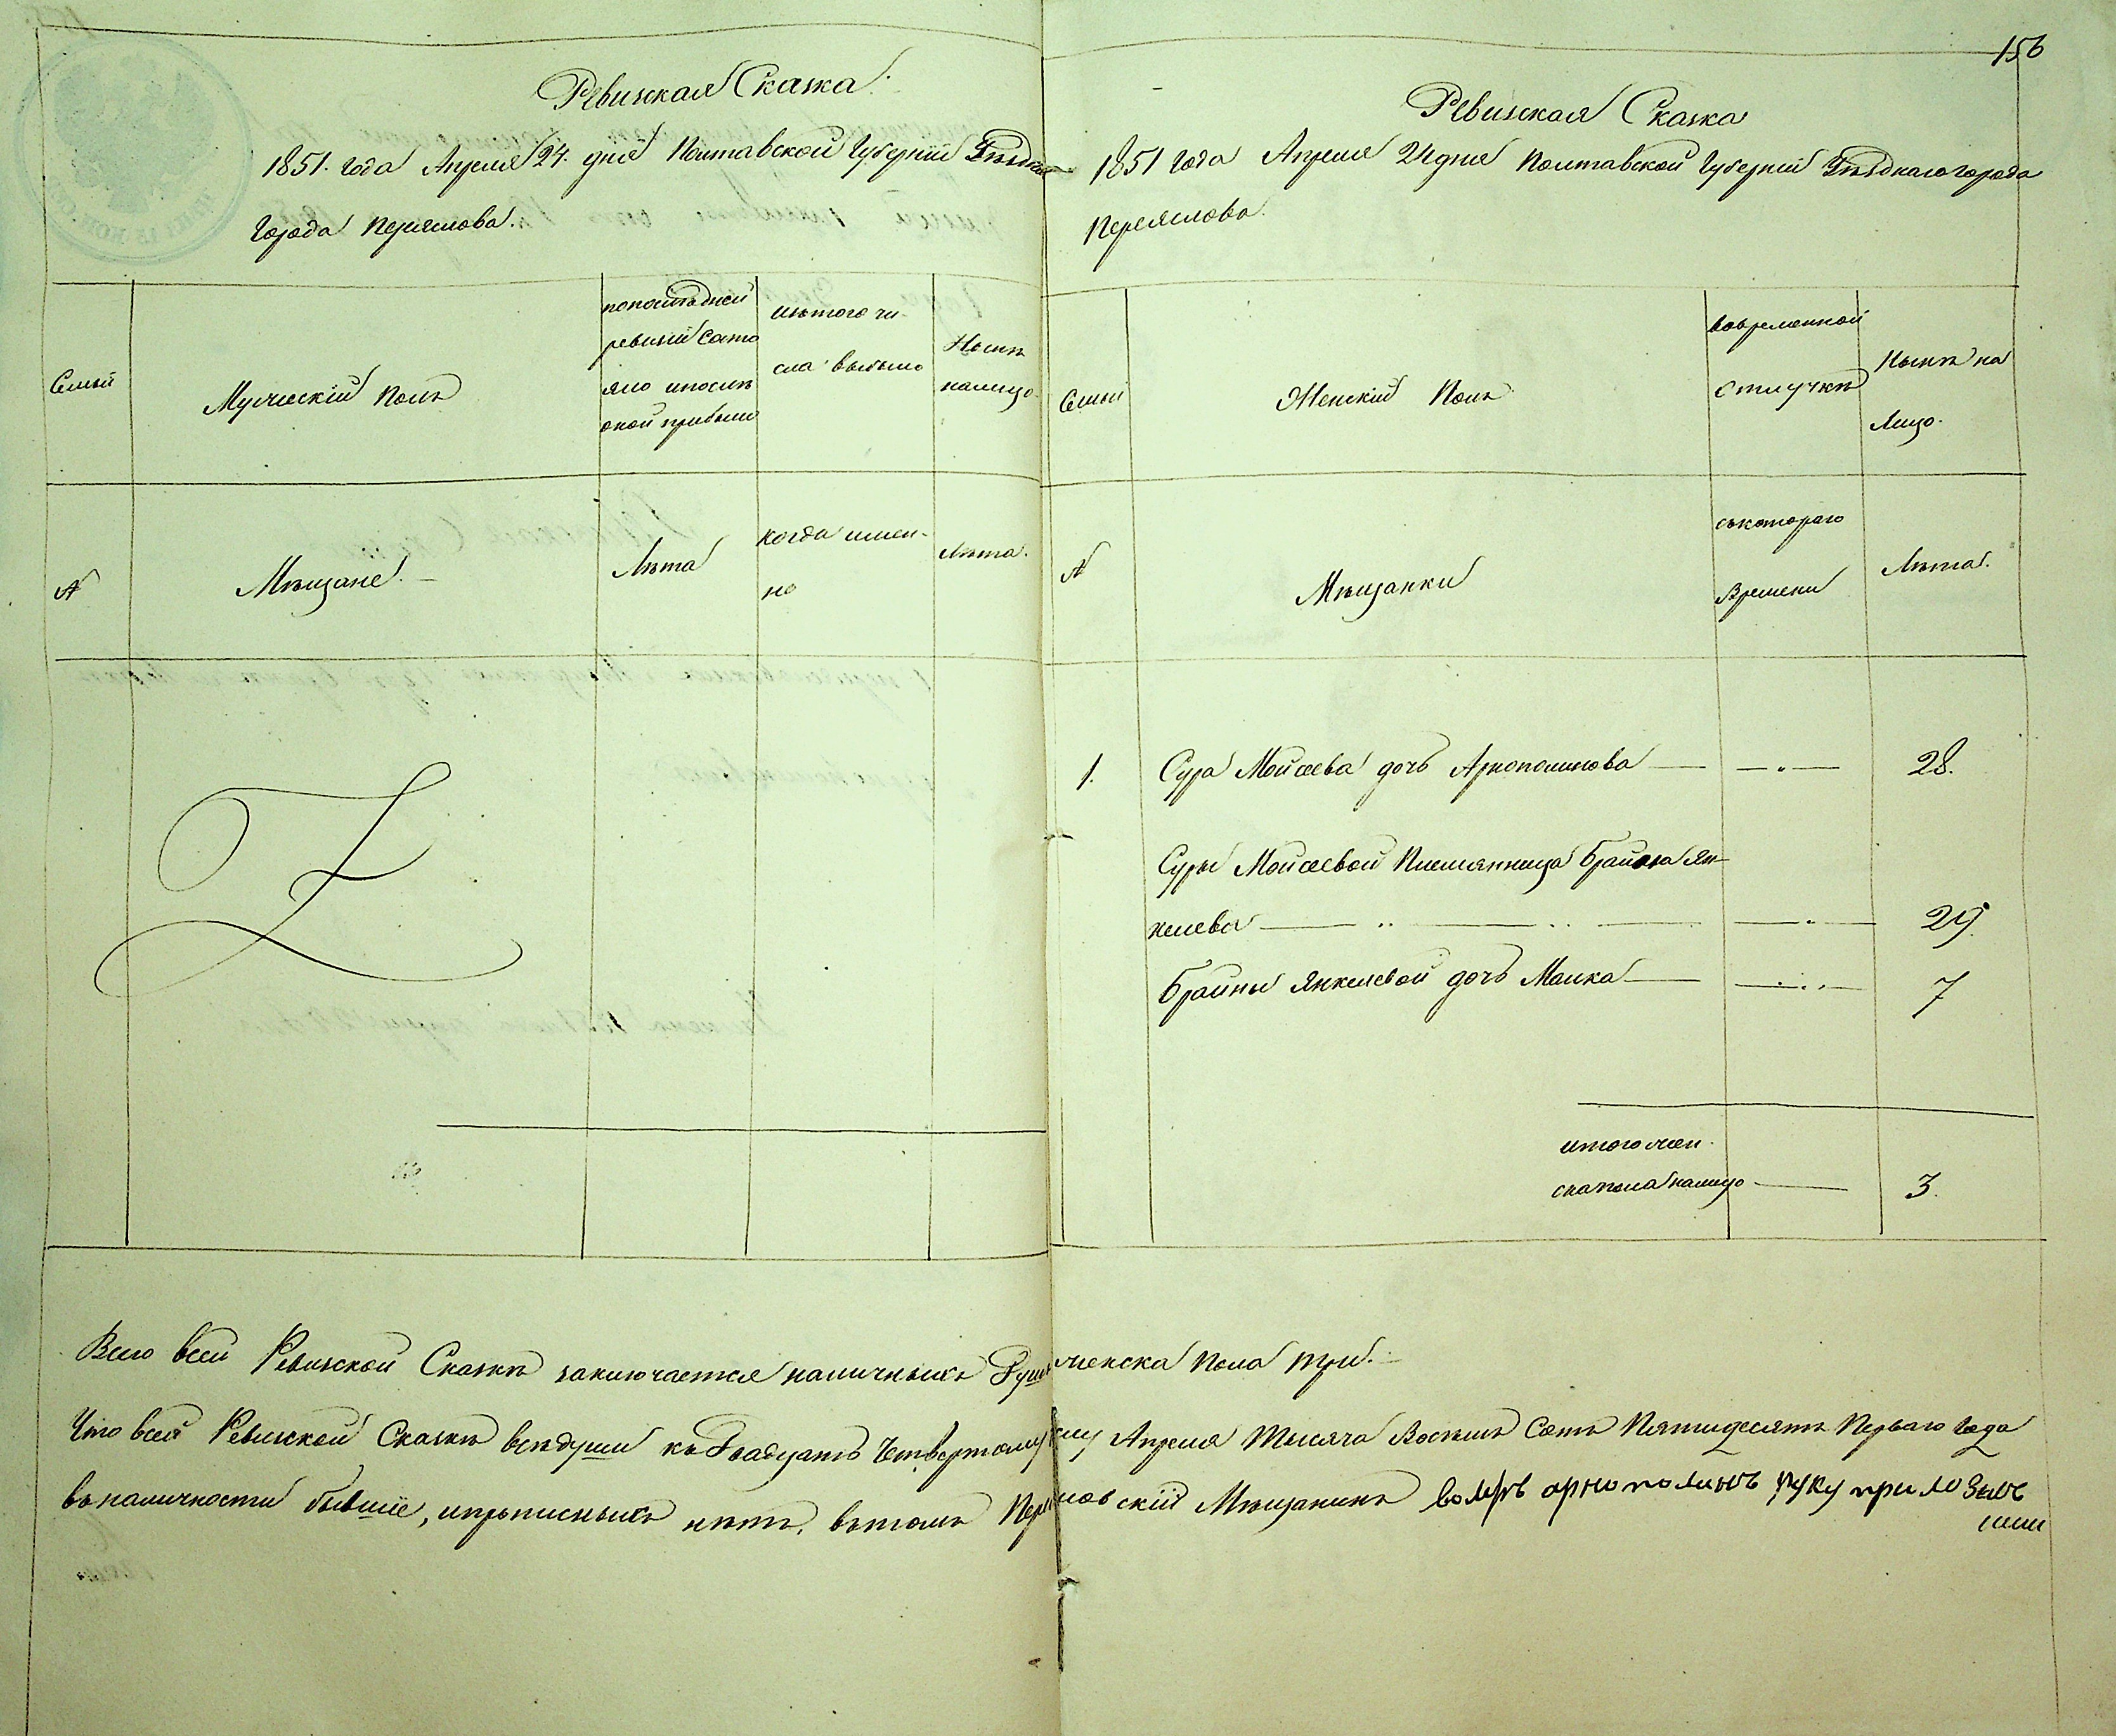 156
Ревизская Сказка.
1851. года Апреля 24. дня Полтавской Губерніи Уѣзднаго
города Переяслова.
Семьи
Мужескій полъ
по послѣдней
ревизіи состо
яло и послѣ
оной прибыло
изъ того чи-
сла выбыло
Нынѣ
на лицо
№
Мѣщане.
Лѣта
когда имен-
но
Лѣта.
Ревизская Сказка
1851 года Апреля 24 дня Полтавской Губерніи Уѣзднаго города
Переяслова.
Семьи
Женскій Полъ
во временной
отлучкѣ
Нынѣ на
лицо.
№
Мѣщанки
съ котораго
времени
Лѣта.
1. Сура Мойсеева дочь Арнополинова — 28.
Суры Мойсеевой Племянница Брайна Ян-
келева — 29.
Брайны Янкелевой дочь Малка — 7
итого жен-
ска пола на лицо — 3.
Всего в сей Ревизской Сказкѣ заключается наличныхъ Душъ женска пола три.
Что в сей Ревизской Сказкѣ всѣ души къ Двадцать Четвертому Апреля тысяча Восемь Сотъ Пятидесятъ Перваго года
въ наличности бывшіе, и прописныхъ нѣтъ, въ томъ Мѣщанинъ арнополинъ руку приложилъ